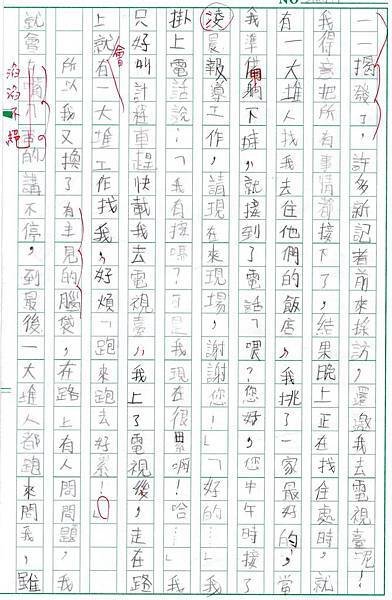 NO
一一揭發了,許多新記者前來採訪,還邀我去電視臺呢!
我得意把所有事情都接下了,結果晚上正在找住處時,就
有一大堆人找我去住他們的飯店,我挑了一家最好的,當
我準備躺下時,就接到了電話「喂?您好,您中午時接了
凌晨報導工作,請現在來現場,謝謝您!」「好的……」我
掛上電話說:「我有接嗎?可是我現在很累啊!哈……」我
只好叫計程車趕快載我去電視臺,我上了電視後,走在路
上就會有一大堆工作找我,好煩「跑來跑去好累!」
所以我又換了有主見的腦袋,在路上有人問問題,我
就會滔滔不絕的講不停,到最後一大堆人都跑來問我,雖